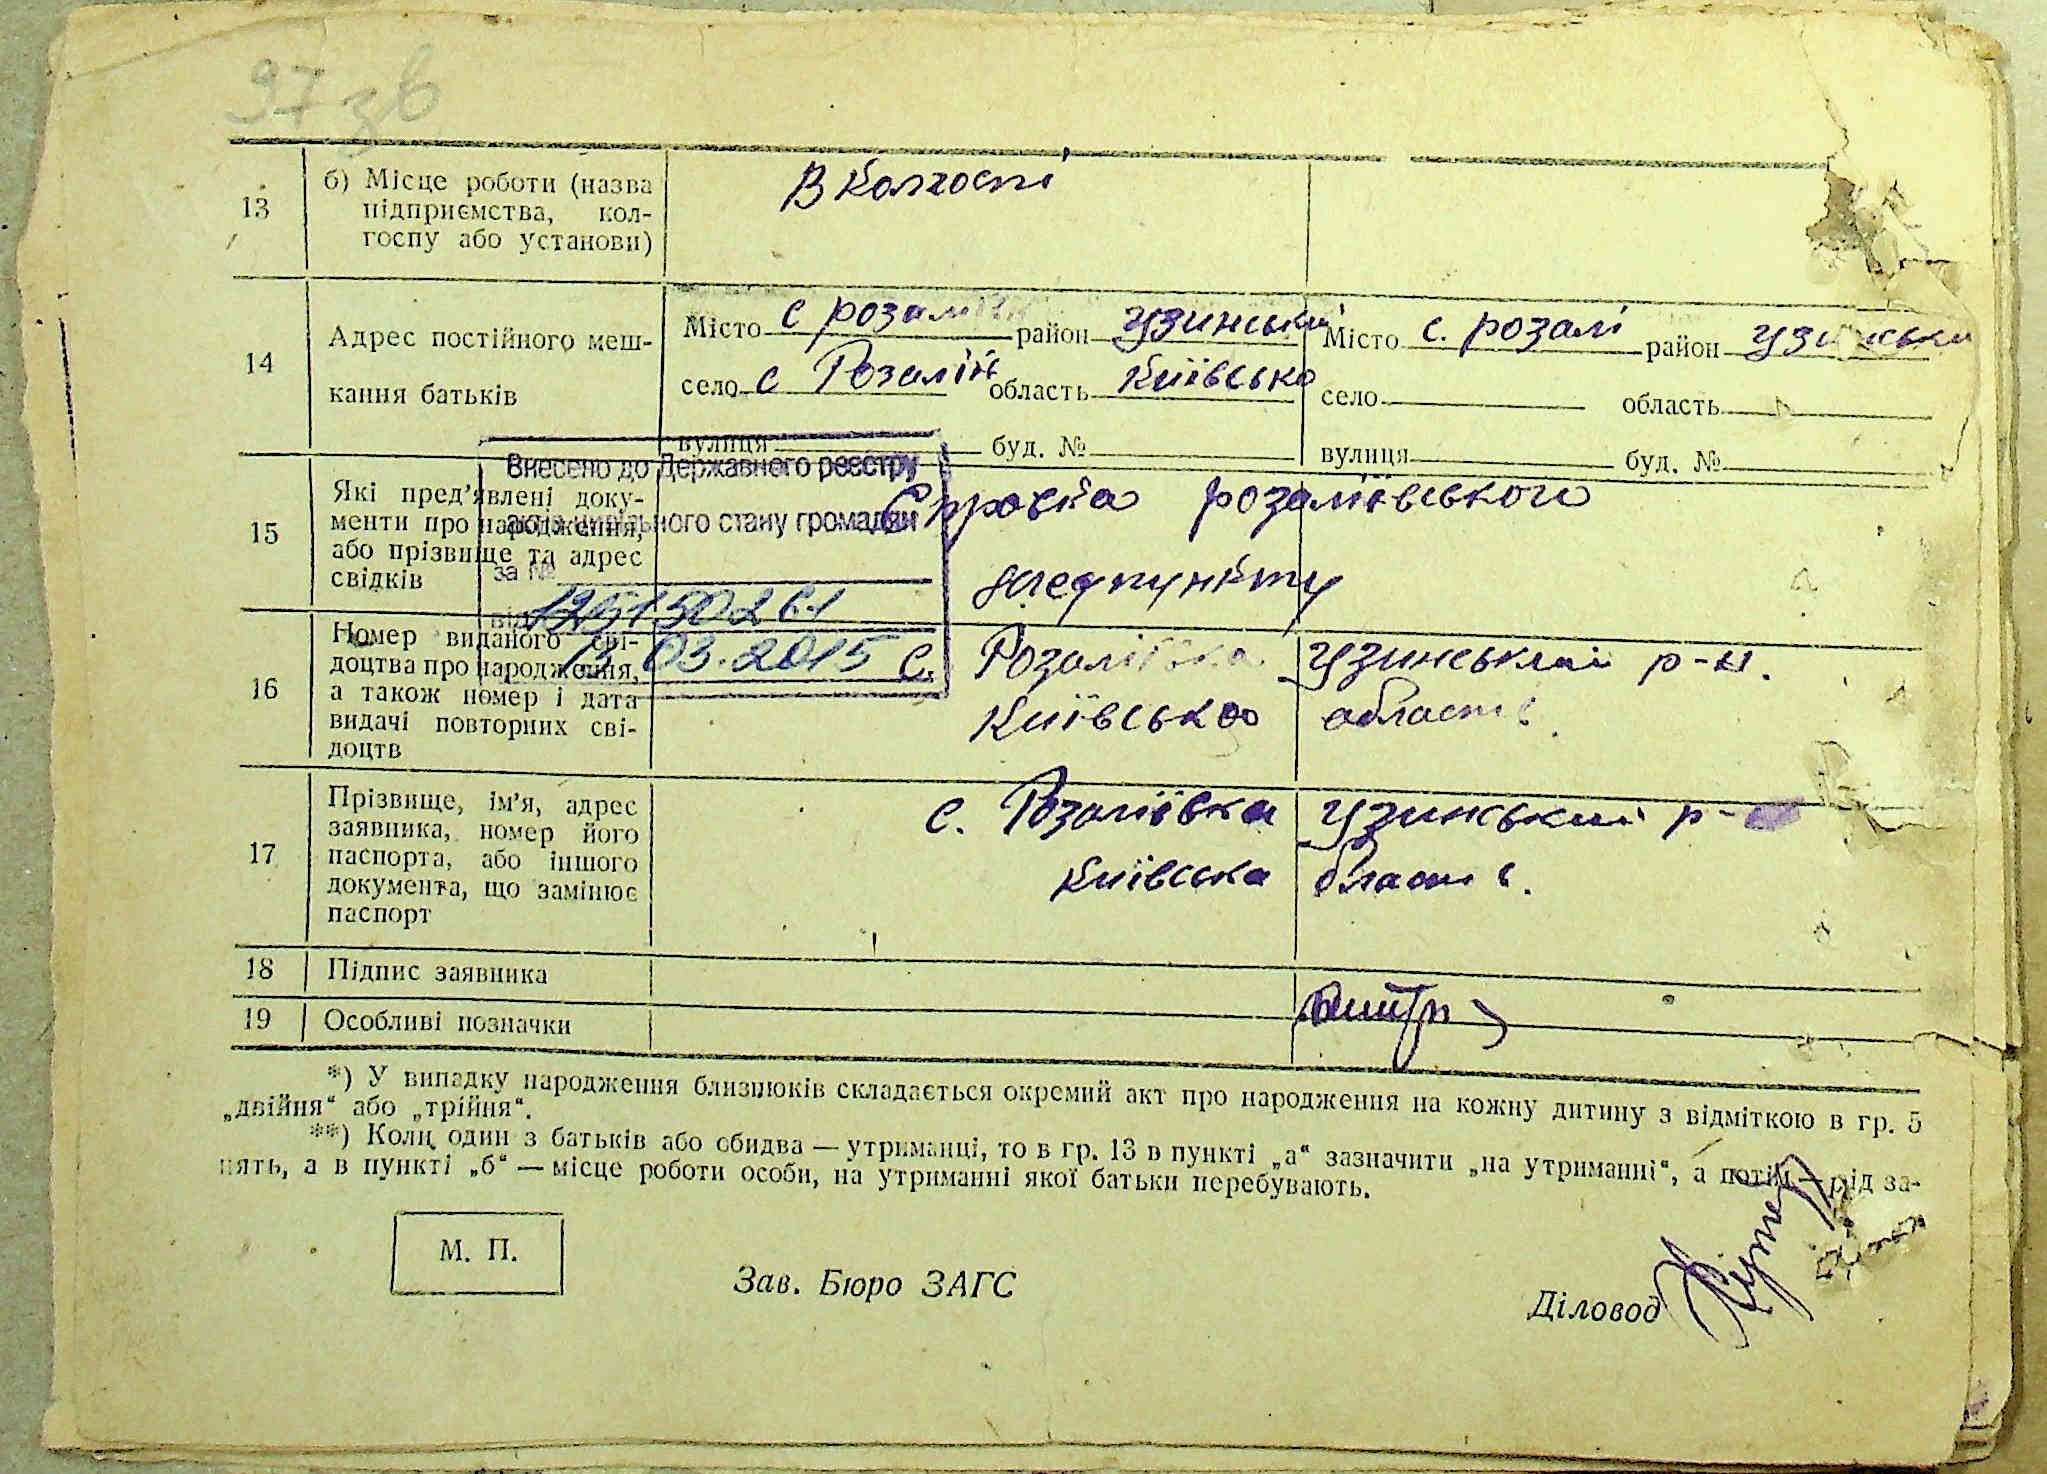 97 зв
13
б) Місце роботи (назва
підприємства, кол-
госпу або установи)
В колгоспі
14
Адрес постійного меш-
кання батьків
Місто с розаліївк район Узинський
село с Розаліїв область Київсько
вулиця буд. №
Місто с. розалі район Узинськи
село область
вулиця буд. №
Внесено до Державного реєстру
актів цивільного стану громадян
за №
від 12515026.1
13.03.2015
15
Які пред'явлені доку-
менти про народження,
або прізвище та адрес
свідків
Справка розаліївського
медпункту
16
Номер виданого сві-
доцтва про народження,
а також номер і дата
видачі повторних сві-
доцтв
с. Розаліївка Узинський р-н.
Київсько області.
17
Прізвище, ім'я, адрес
заявника, номер його
паспорта, або іншого
документа, що замінює
паспорт
с. Розаліївка Узинський р-
Київська області.
18
Підпис заявника
19
Особливі позначки
*) У випадку народження близнюків складається окремий акт про народження на кожну дитину з відміткою в гр. 5
„двійня“ або „трійня“.
**) Коли один з батьків або обидва — утриманці, то в гр. 13 в пункті „а“ зазначити „на утриманні“, а потім — рід за-
нять, а в пункті „б“ — місце роботи особи, на утриманні якої батьки перебувають.
М. П.
Зав. Бюро ЗАГС
Діловод